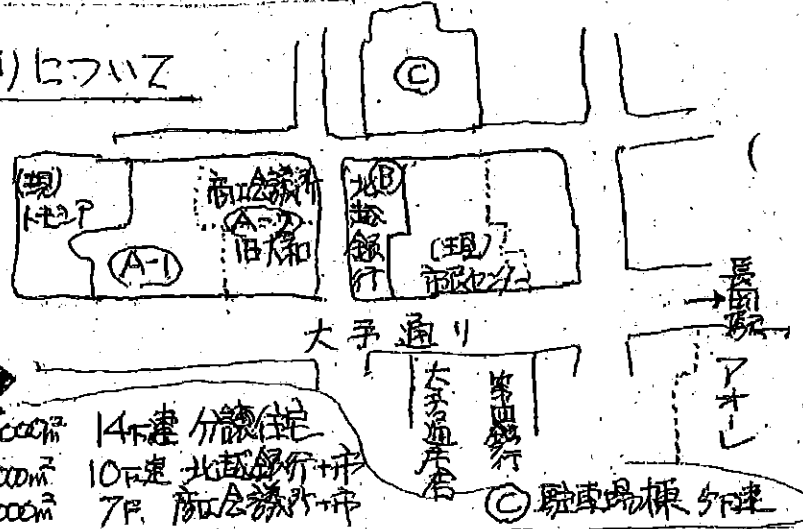 について
Ⓒ
(現)
トモシア
商工会議所
A-2
旧大和
A-1
Ⓑ
北越銀行
(現)
市民センター
長岡駅
大手通り
アオーレ
大手通庄店
第四銀行
000㎡ 14F建 分譲住宅
000㎡ 10F建 北越銀行+市
000㎡ 7F 商工会議所+市
Ⓒ駐車場棟 5F建